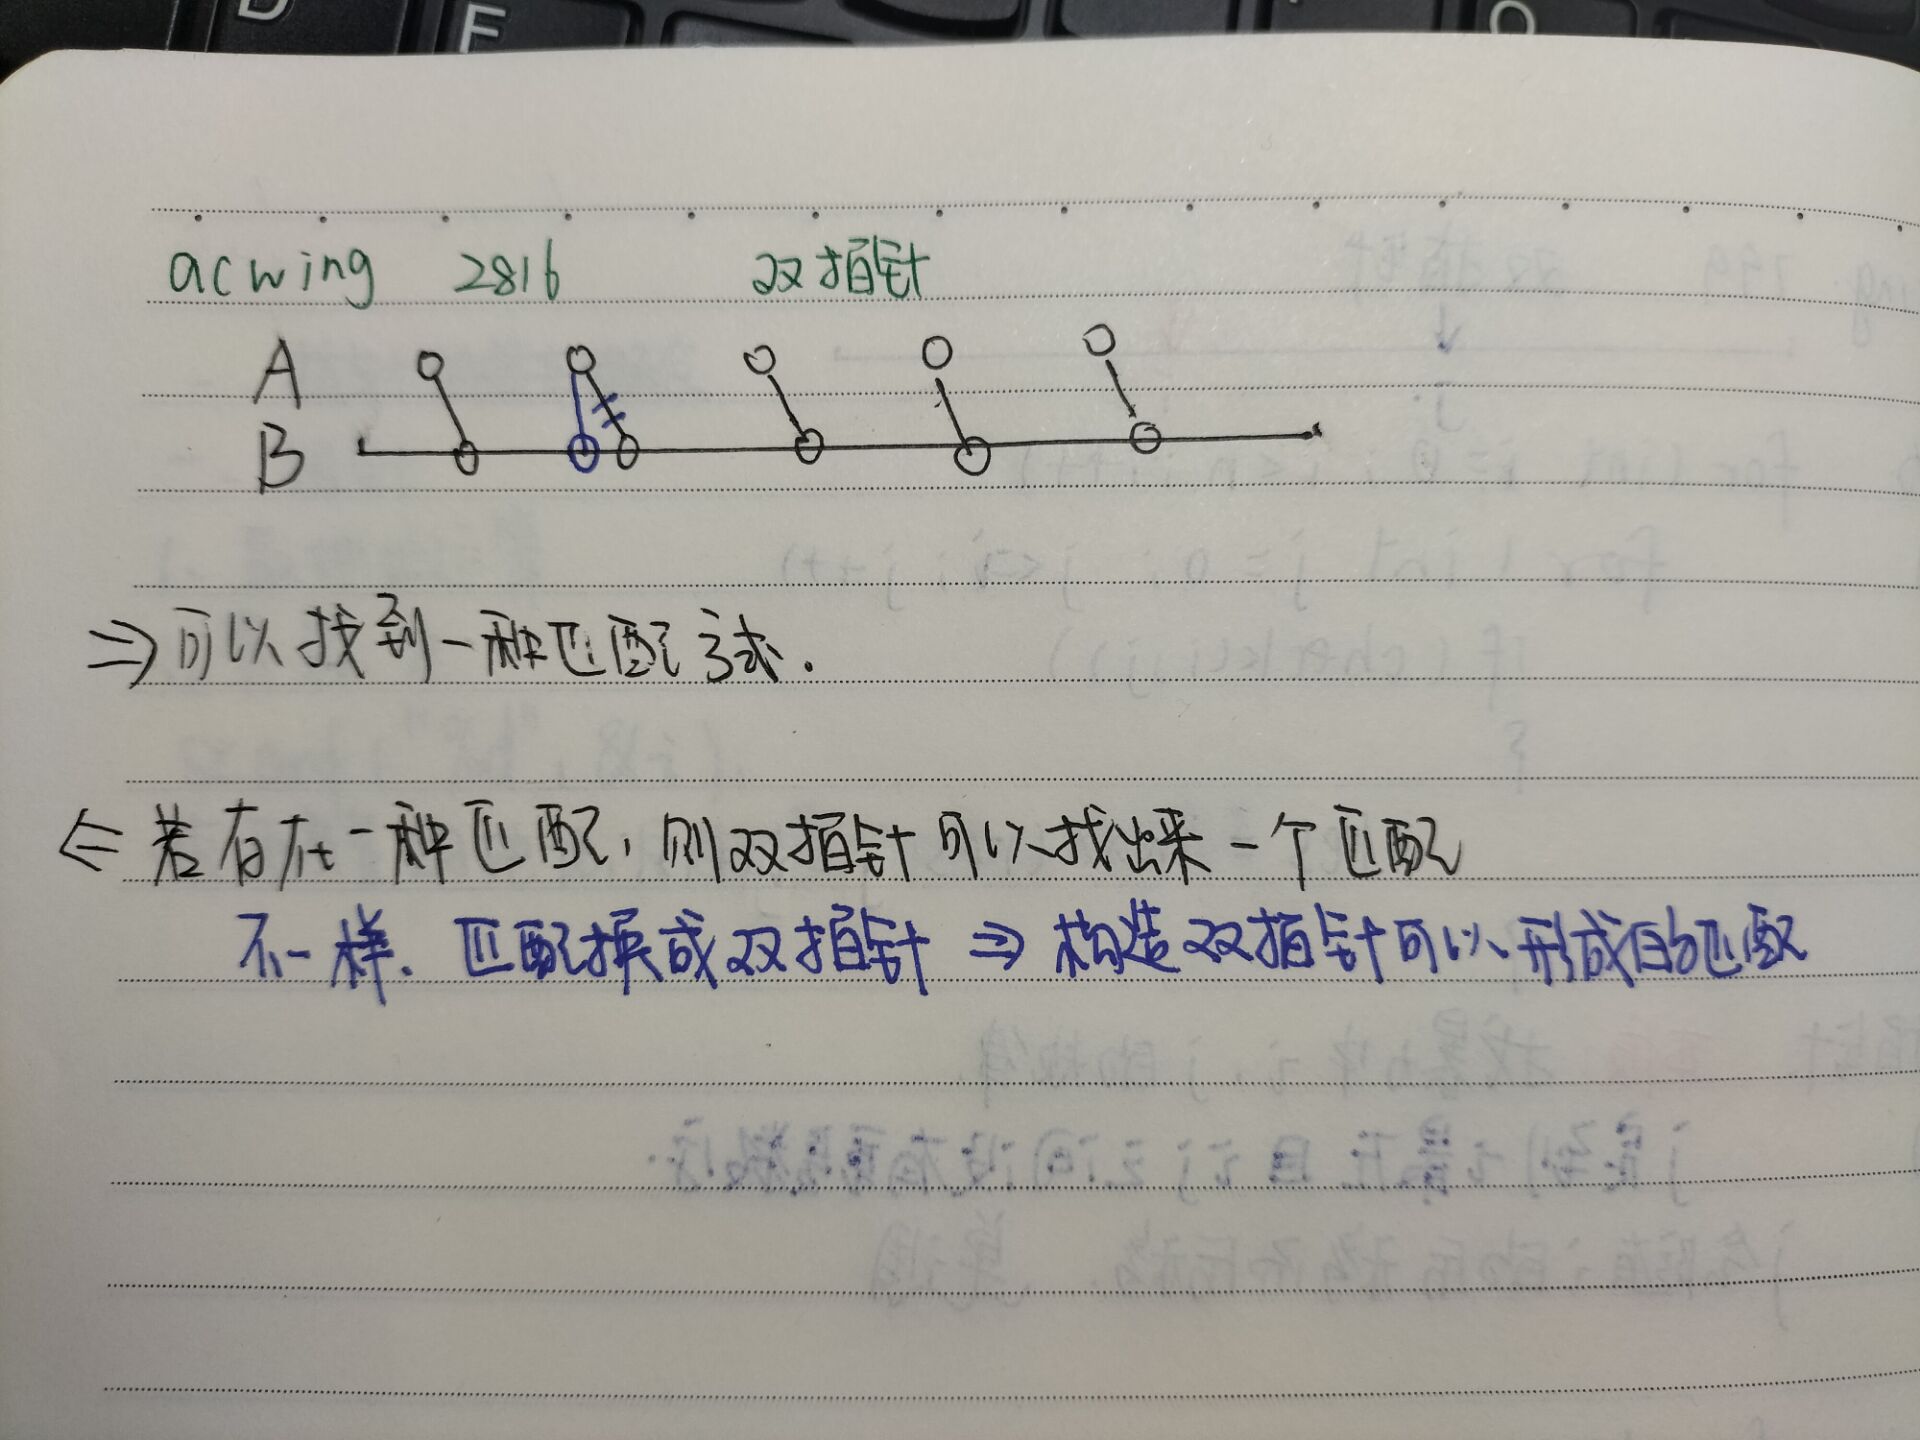 D F O
acwing 2816 双指针
A
B
⇒ 可以找到一种匹配方式.
⇐ 若存在一种匹配,则双指针可以找出来一个匹配
不一样. 匹配换成双指针 ⇒ 构造双指针可以形成的匹配